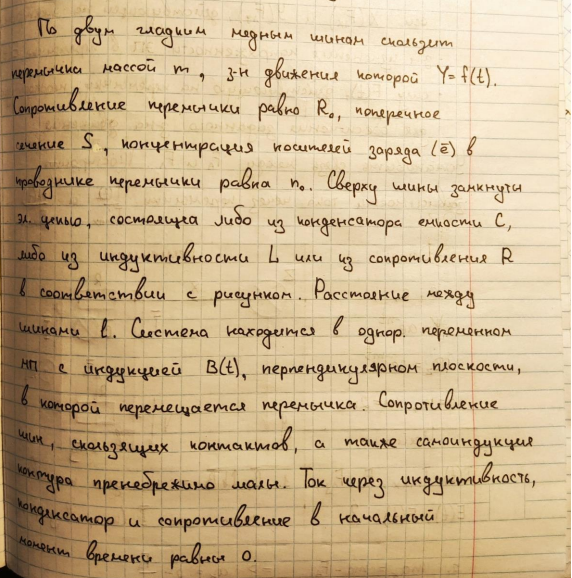 По двум гладким медным шинам скользит
перемычка массой m, з-н движения которой Y=f(t).
Сопротивление перемычки равно R₀, поперечное
сечение S, концентрация носителей заряда (ē) в
проводнике перемычки равна n₀. Сверху шины замкнуты
эл. цепью, состоящеа либо из конденсатора емкости C,
либо из индуктивности L или из сопротивления R
в соответствии с рисунком. Расстояние между
шинами ℓ. Система находится в однор. переменном
МП с индукцией B(t), перпендикулярном плоскости,
в которой перемещается перемычка. Сопротивление
шин, скользящих контактов, а также самоиндукция
контура пренебрежимо малы. Ток через индуктивность,
конденсатор и сопротивление в начальный
момент времени равны 0.